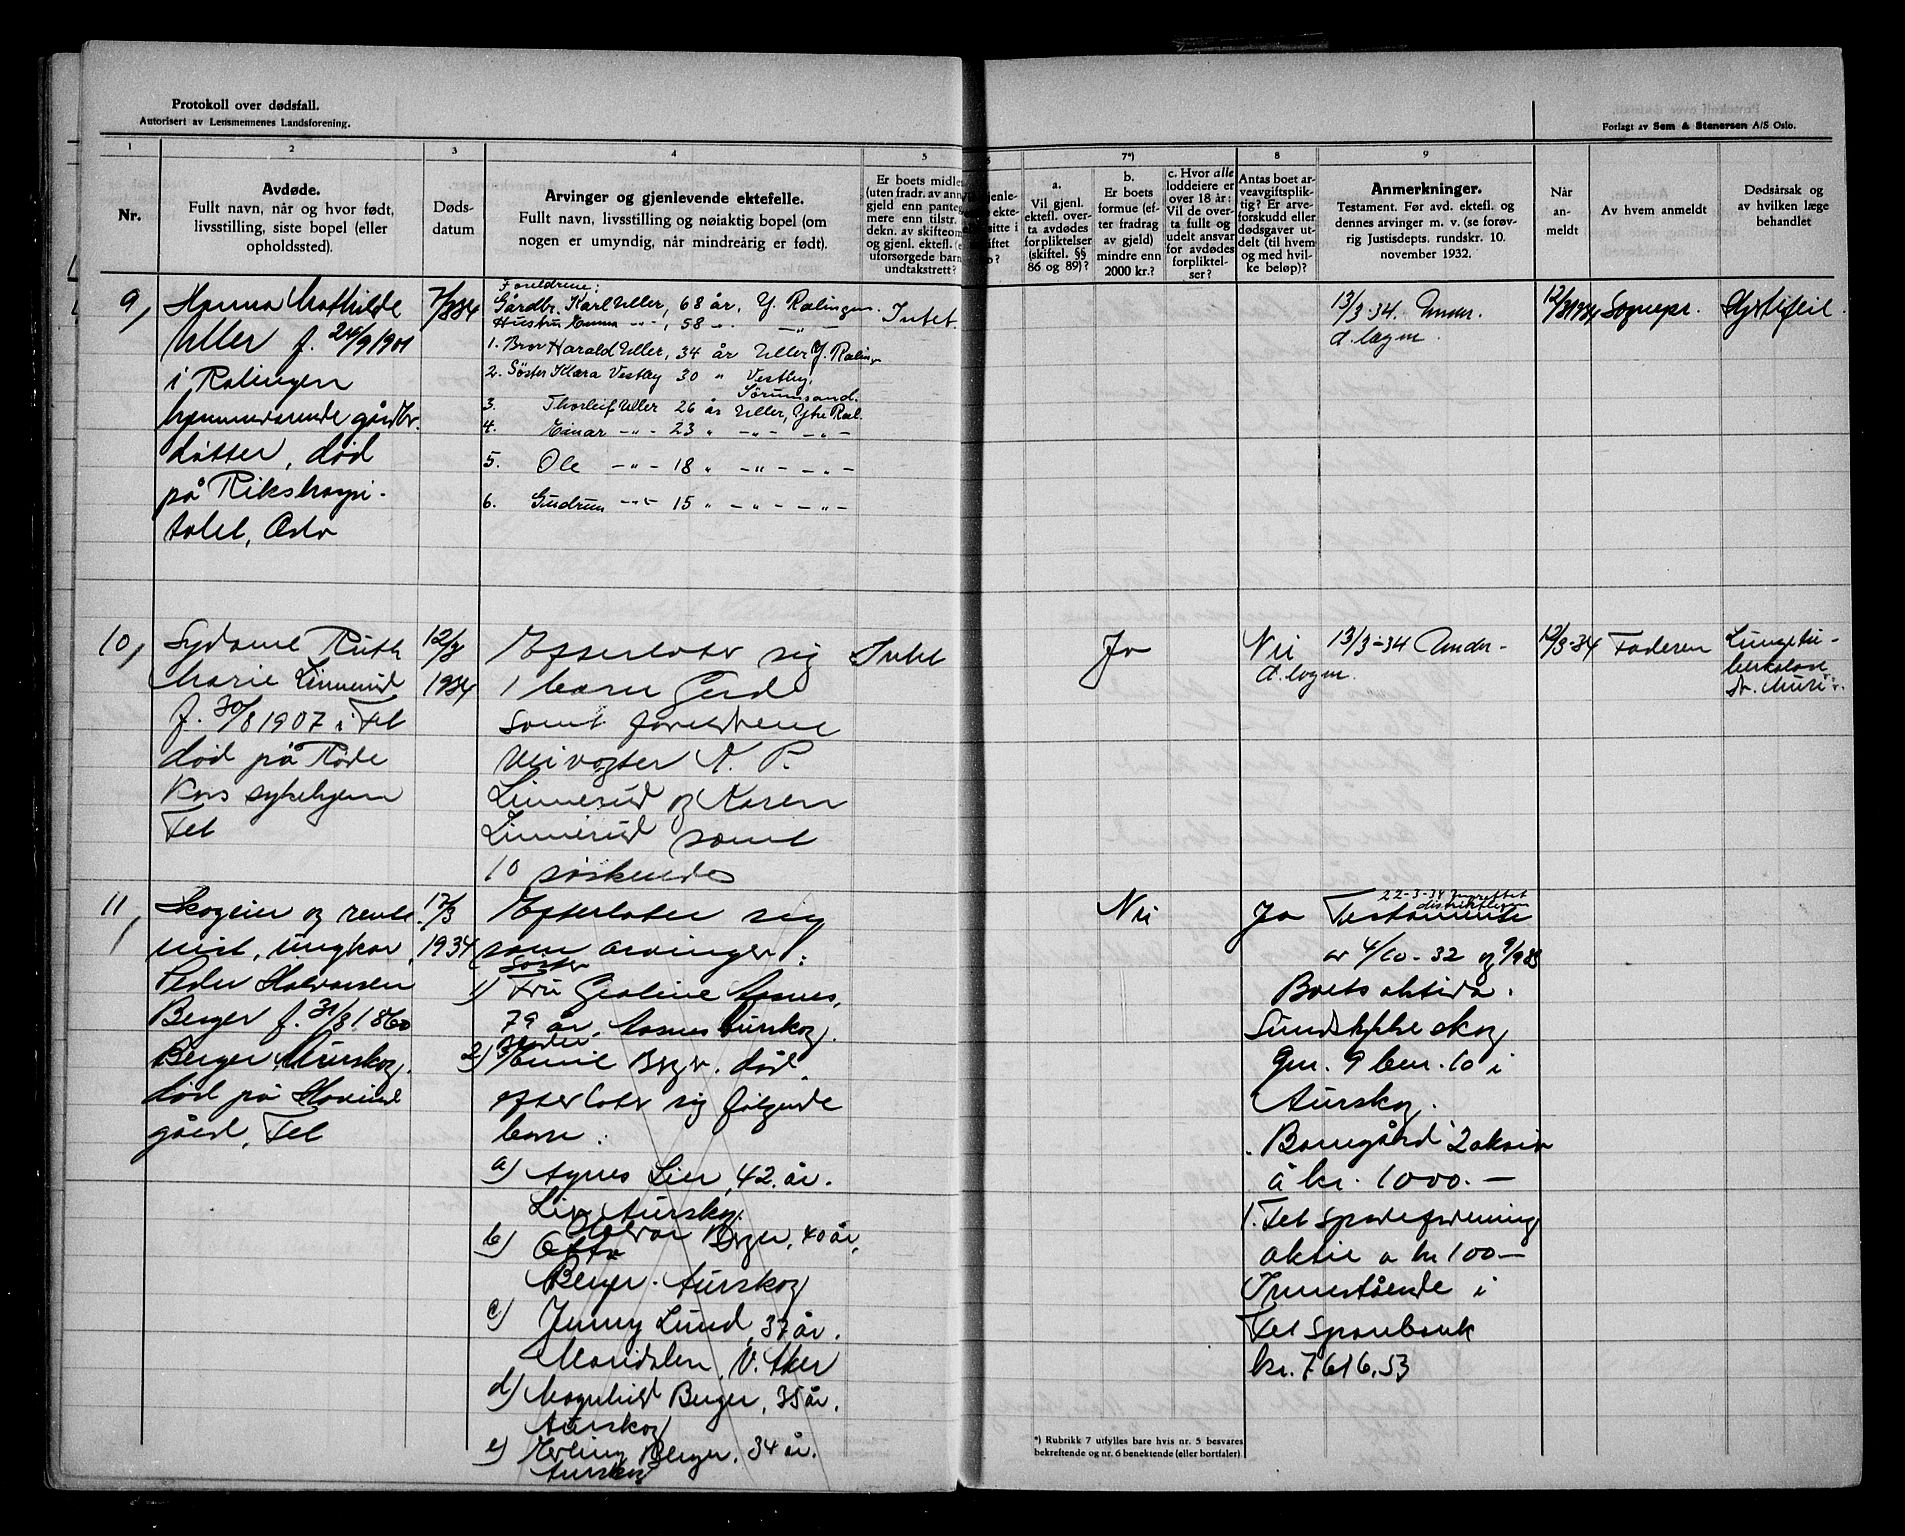 Protokoll over dødsfall.
Autorisert av Lensmennenes Landsforening.
Forlagt av Sem & Stenersen A/S Oslo.
1
2
3
4
5
6
7*)
8
9
Nr.
Avdøde.
Fullt navn, når og hvor født,
livsstilling, siste bopel (eller
opholdssted).
Døds-
datum
Arvinger og gjenlevende ektefelle.
Fullt navn, livsstilling og nøiaktig bopel (om
nogen er umyndig, når mindreårig er født).
Er boets midle
(uten fradr. av ann
gjeld enn pante
mere enn tilstr.
dekn. av skifteom
og gjenl. ektefl. (e
uforsørgede barn
undtakstrett?
a.
Vil gjenl.
ektefl. over-
ta avdødes
forpliktelser
(skiftel. §§
86 og 89)?
b.
Er boets
formue (ef-
ter fradrag
av gjeld)
mindre enn
2000 kr.?
c. Hvor alle
loddeiere er
over 18 år:
Vil de over-
ta fullt og
udelt ansvar
for avdødes
forpliktel-
ser?
Antas boet ar-
veavgiftsplik-
tig? Er arve-
forskudd eller
dødsgaver ut-
delt (til hvem
og med hvil-
ke beløp)?
Anmerkninger.
Testament. Før avd. ektefl. og
dennes arvinger m. v. (se forøv-
rig Justisdepts. rundskr. 10.
november 1932.
Når
an-
meldt
Av hvem anmeldt
Dødsårsak og
av hvilken læge
behandlet
9,
Hanna Mathilde
Uller f. 24/9 1901
i Rælingen
hjemmeværende gårdbr.
datter, død
på Rikshospi-
talet, Oslo
7/3 34
Foreldrene:
Gårdbr. Karl Uller, 68 år, Y. Rælingen
Hustru Emma -"-, 58 -"- -"-
1. Bror Harald Uller, 34 år Uller Y.Ræling
2. Søster Klara Vestby 30 " Vestby,
Sørumsand.
3. Thorleif Uller 26 år Uller, Ytre Ræl.
4. Einar -"- 23 " -"- -"-
5. Ole -"- 18 " -"- -"-
6. Gudrun -"- 15 " -"- -"-
Intet
13/3-34. Under.
d. lagm.
12/3 1934
Sognepr.
Hjertefeil.
10,
Sydame Ruth
Marie Linnerud
f. 30/8 1907 i Fet
død på Røde
Kors sykehjem
Fet
12/3
1934
Efterlater sig
1 barn Gerd
samt foreldrene
veivogter K. P.
Linnerud og Karen
Linnerud samt
10 søskende
Intet
Ja
Nei
13/3-34 Under-
d. lagm.
12/3-34
Faderen
Lungetu-
berkulose
11,
Skogeier og rente-
nist, ungkar,
Peder Halvorsen
Berger f. 31/3 1860
Berger, Aurskog.
død på Hovind
gård, Fet
17/3
1934
Efterlater sig
som arvinger:
Søster
1) Fru Geoline Aasnes,
79 år, Aasnes Aurskog.
Broder
2) Emil Berger. død.
efterlater sig følgende
barn:
a) Agnes Lier, 42 år.
Lier Aurskog.
b) Otto Halvor Berger, 40 år,
Berger. Aurskog
c) Jenny Lund, 37 år.
Maridalen, V. Aker
d) Magnhild Berger, 35 år.
Aurskog
e) Erling Berger, 34 år.
Aurskog
Nei
Ja
22-3-34
Testamente
av 4/10-32 og 9/9 33
Boets aktiva.
Sundslykke skog
gnr. 9 bnr. 10 i
Aurskog.
Bamegård 2 aksier
à kr. 1000.—
1. Fet Spareforening
aktie a kr 100—
Innestående i
Fet Sparebank
kr. 7616.53
*) Rubrikk 7 utfylles bare hvis nr. 5 besvares
bekreftende og nr. 6 benektende (eller bortfaler).